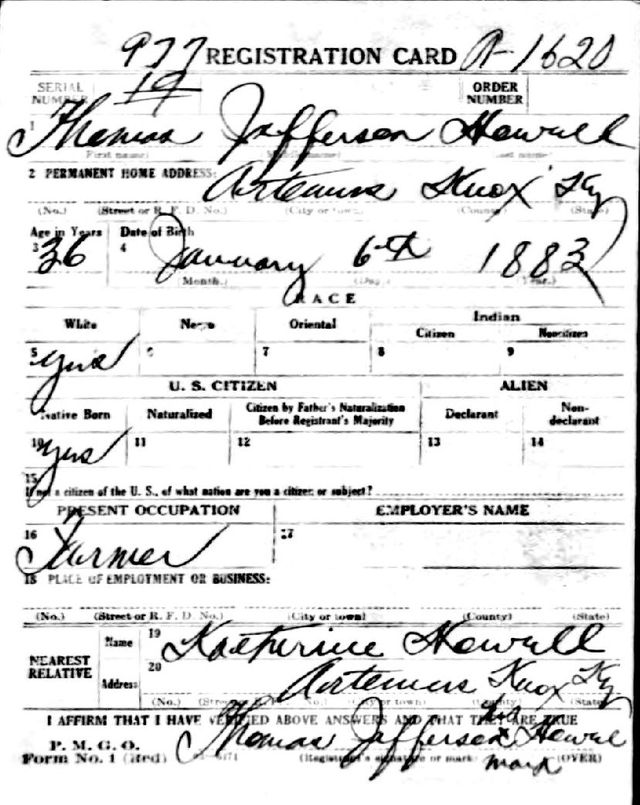 977 REGISTRATION CARD A-1620
SERIAL NUMBER 19 ORDER NUMBER
1 Thomas Jefferson Howell
(First name) (Middle name) (Last name)
2 PERMANENT HOME ADDRESS:
Artemus Knox Ky
(No.) (Street or R. F. D. No.) (City or town) (County) (State)
Age in Years Date of Birth
3 36 4 January 6th 1883
(Month.) (Day.) (Year.)
RACE
White Negro Oriental Indian
Citizen Noncitizen
5 yes 6 7 8 9
U. S. CITIZEN ALIEN
Native Born Naturalized Citizen by Father's Naturalization Before Registrant's Majority Declarant Non-declarant
10 yes 11 12 13 14
15
If not a citizen of the U. S., of what nation are you a citizen or subject?
PRESENT OCCUPATION EMPLOYER'S NAME
16 Farmer 17
18 PLACE OF EMPLOYMENT OR BUSINESS:
(No.) (Street or R. F. D. No.) (City or town) (County) (State)
NEAREST RELATIVE Name 19 Katherine Howell
Address 20 Artemus Knox Ky
(No.) (Street or R. F. D. No.) (City or town) (County) (State)
I AFFIRM THAT I HAVE VERIFIED ABOVE ANSWERS AND THAT THEY ARE TRUE
P. M. G. O.
Form No. 1 (Red) Thomas Jefferson Howell
(Registrant's signature or mark) mark (OVER)